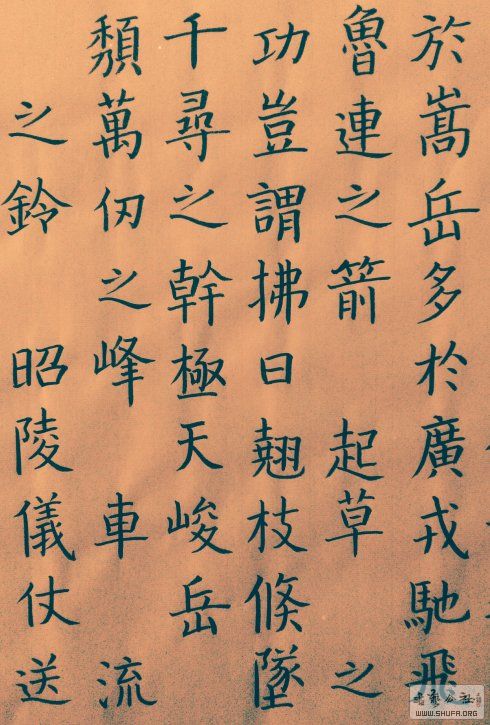 於嵩岳多於廣戎馳飛
魯連之箭 起草 之
功豈謂拂日翹枝倏墜
千尋之幹極天峻岳
頹萬仞之峰 車 流
之鈴 昭陵儀仗送
WWW.SHUFA.ORG